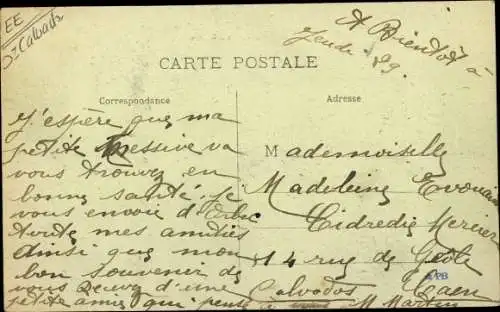 EE
Calvados
A Bientôt à
Jeudi 29.
CARTE POSTALE
Correspondance
Adresse
J'espère que ma
petite Messive va
vous trouvez en
bonne santé. Je
vous envoie d'
toute mes amitiés
ainsi que mon
bon souvenir de
vous recevez d'une
petite amie qui pense à
Mademoiselle
Madeleine
Cidredie Mercier
14 rue de Geôle
Calvados Caen
M Martin